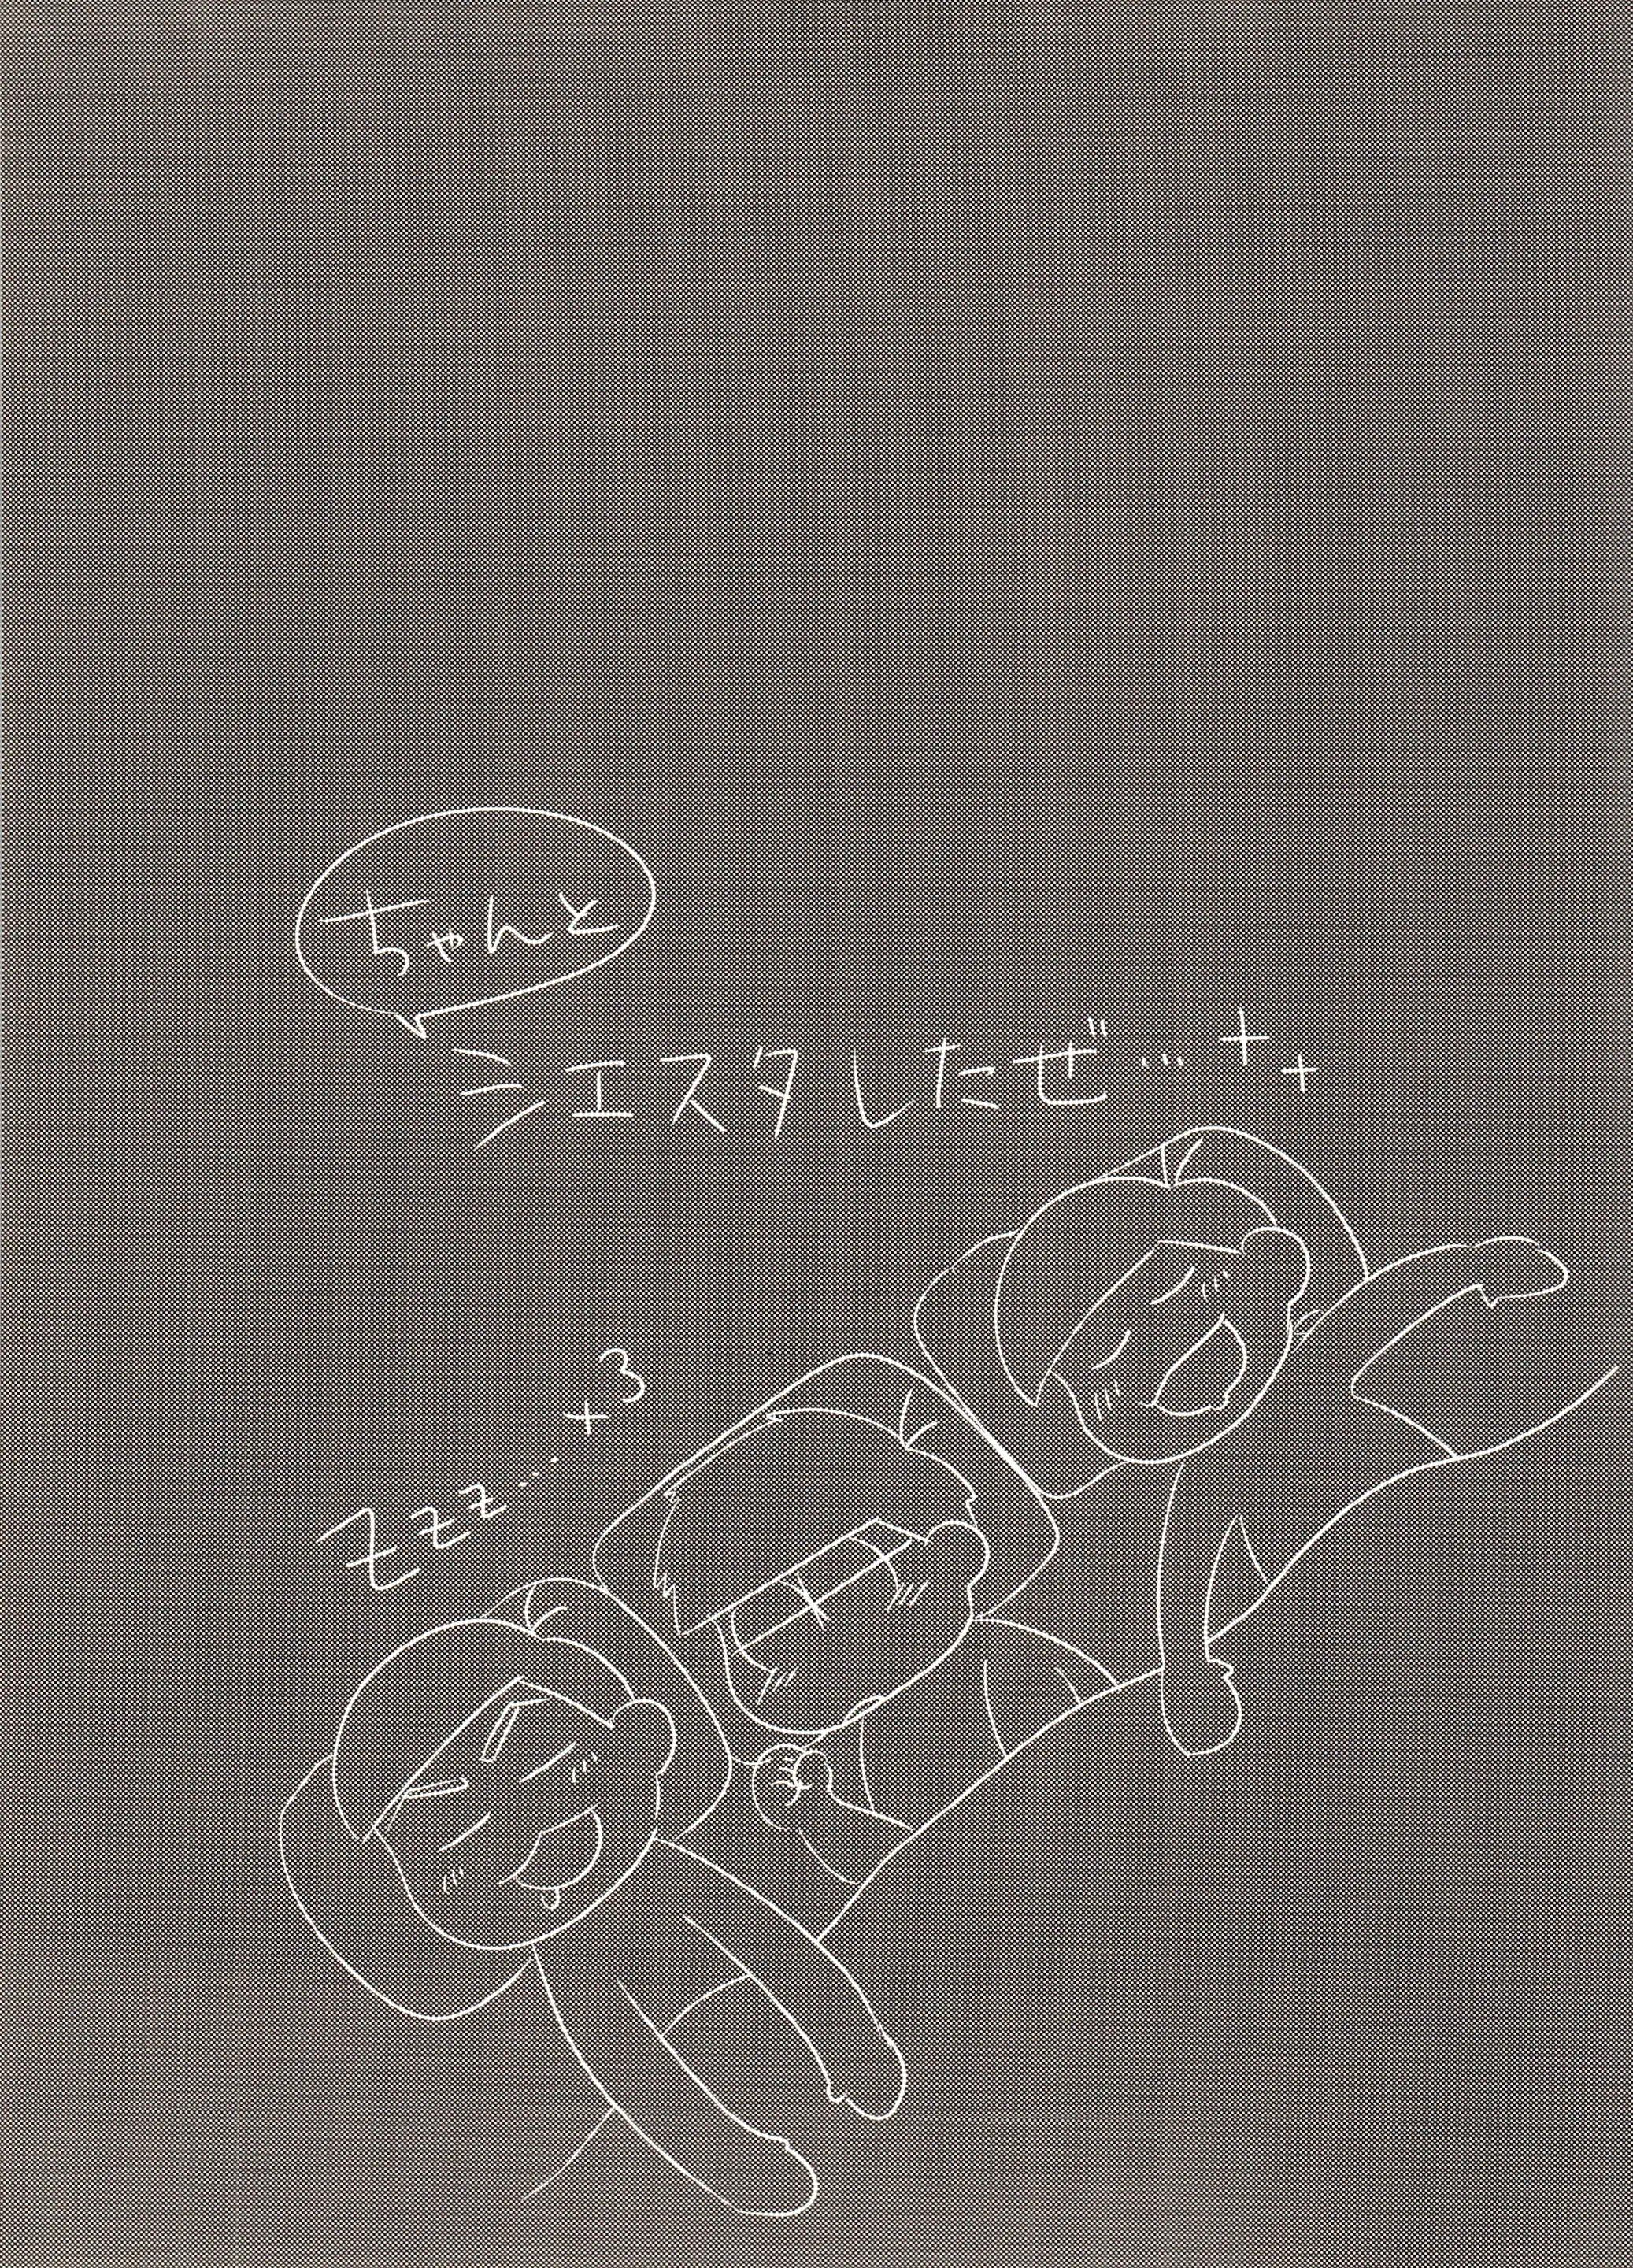 ちゃんと
シエスタしたぜ…
zzz…×3